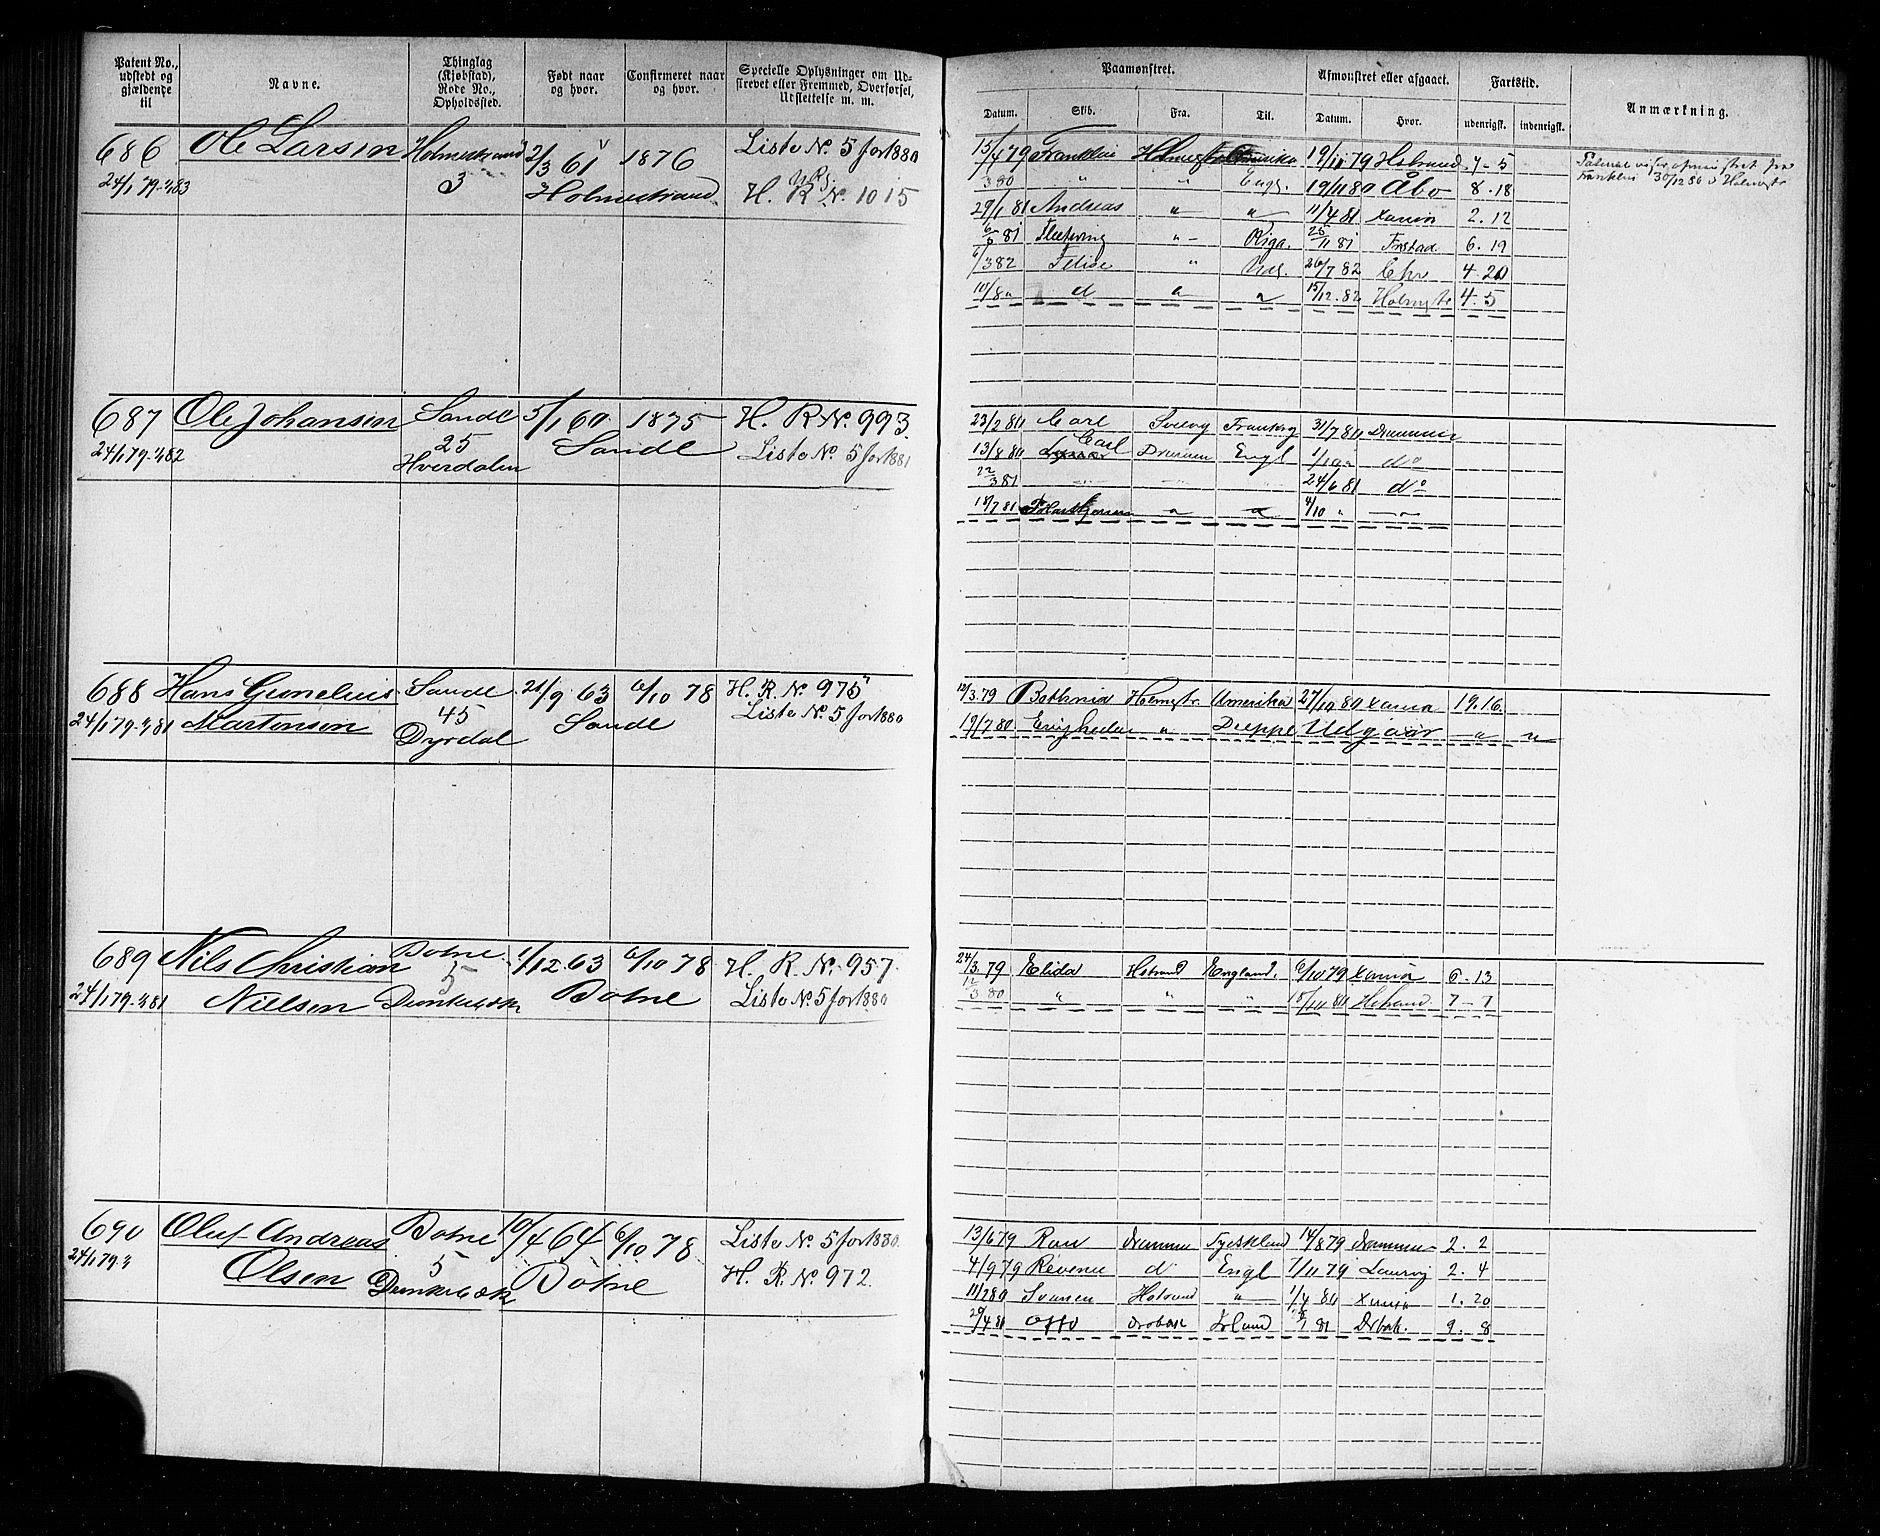 Patent No., udstedt og gjældende til
Navne.
Thinglag (Kjøbstad), Rode No., Opholdssted.
Født naar og hvor.
Confirmeret naar og hvor.
Specielle Oplysninger om Udskrevet eller Fremmed, Overførsel, Udslettelse m. m.
Paamønstret.
Datum. Skib. Fra. Til.
Afmønstret eller afgaaet.
Datum. Hvor.
Fartstid.
udenrigst. indenrigst.
Anmærkning.
686 Ole Larsen Holmestrand 2/3 61 1876 Liste No. 5 for 1880
24/1 79-3/83 3 Holmestrand H. R. No. 1015
15/4 79 Franklin Holmestr Amerika 19/11 79 Hstrand 7-5
3 80 " " Engl. 19/11 80 Åbo 8.18
29/1 81 Andreas " " 11/4 81 Xania 2.12
6/5 81 " Riga. 25/11 81 Frstad 6.19
/3 82 Felise " 26/7 82 Chr 4.20
10/8 " d " " 15/12.82 Holmestr 4.5
Franklin 30/12 80 i Holmestr
687 Ole Johansen Sande 5/1 60 1875 H. R No. 993.
24/1 79-3/82 25 Sande Liste No. 5 for 1881
Hverdalen
23/2 80 Carl Svelvig Frankrig 31/7 80 Drammen
13/8 80 Carl Drammen Engl 1/10 " do
22/3 81 24/6 81 do
18/7 81 " " 4/10 " "
688 Hans Gunelius Sande 21/9 63 6/10 78 H. R. No. 975
24/1 79-3/81 Martensen 45 Sande Liste No. 5 for 1880
Dyrdal
12/3.79 Bethania Holmestr. Amerika 27/10 80 Xania 19.16.
19/7 80 " Dieppe Udgaar " "
689 Nils Christian Botne 1/12 63 6/10 78 H. R. No. 957.
24/1 79-3/81 Nielsen 5 Botne Liste No. 5 for 1880
24/3.79 Elida Hstrand England. 6/10 79 Xania 6.13
12/3 80 " " " 15/11 80 Hstrand. 7-7
690 Oluf Andreas Botne 10/4 64 6/10 78 Liste No. 5 for 1880.
24/1 79-3 Olsen 5 Botne H. R. No. 972.
13/6 79 Ran Drammen Tyskland 14/8 79 Drammen 2.2
4/9 79 Revenue d Engl 7/11 79 Laurvig 2.4
11/2 80 Svanen Hstrand " 1/4 80 Xania 1.20
20/4 81 Otto Drobak Irland 81 Drbak. 9.8